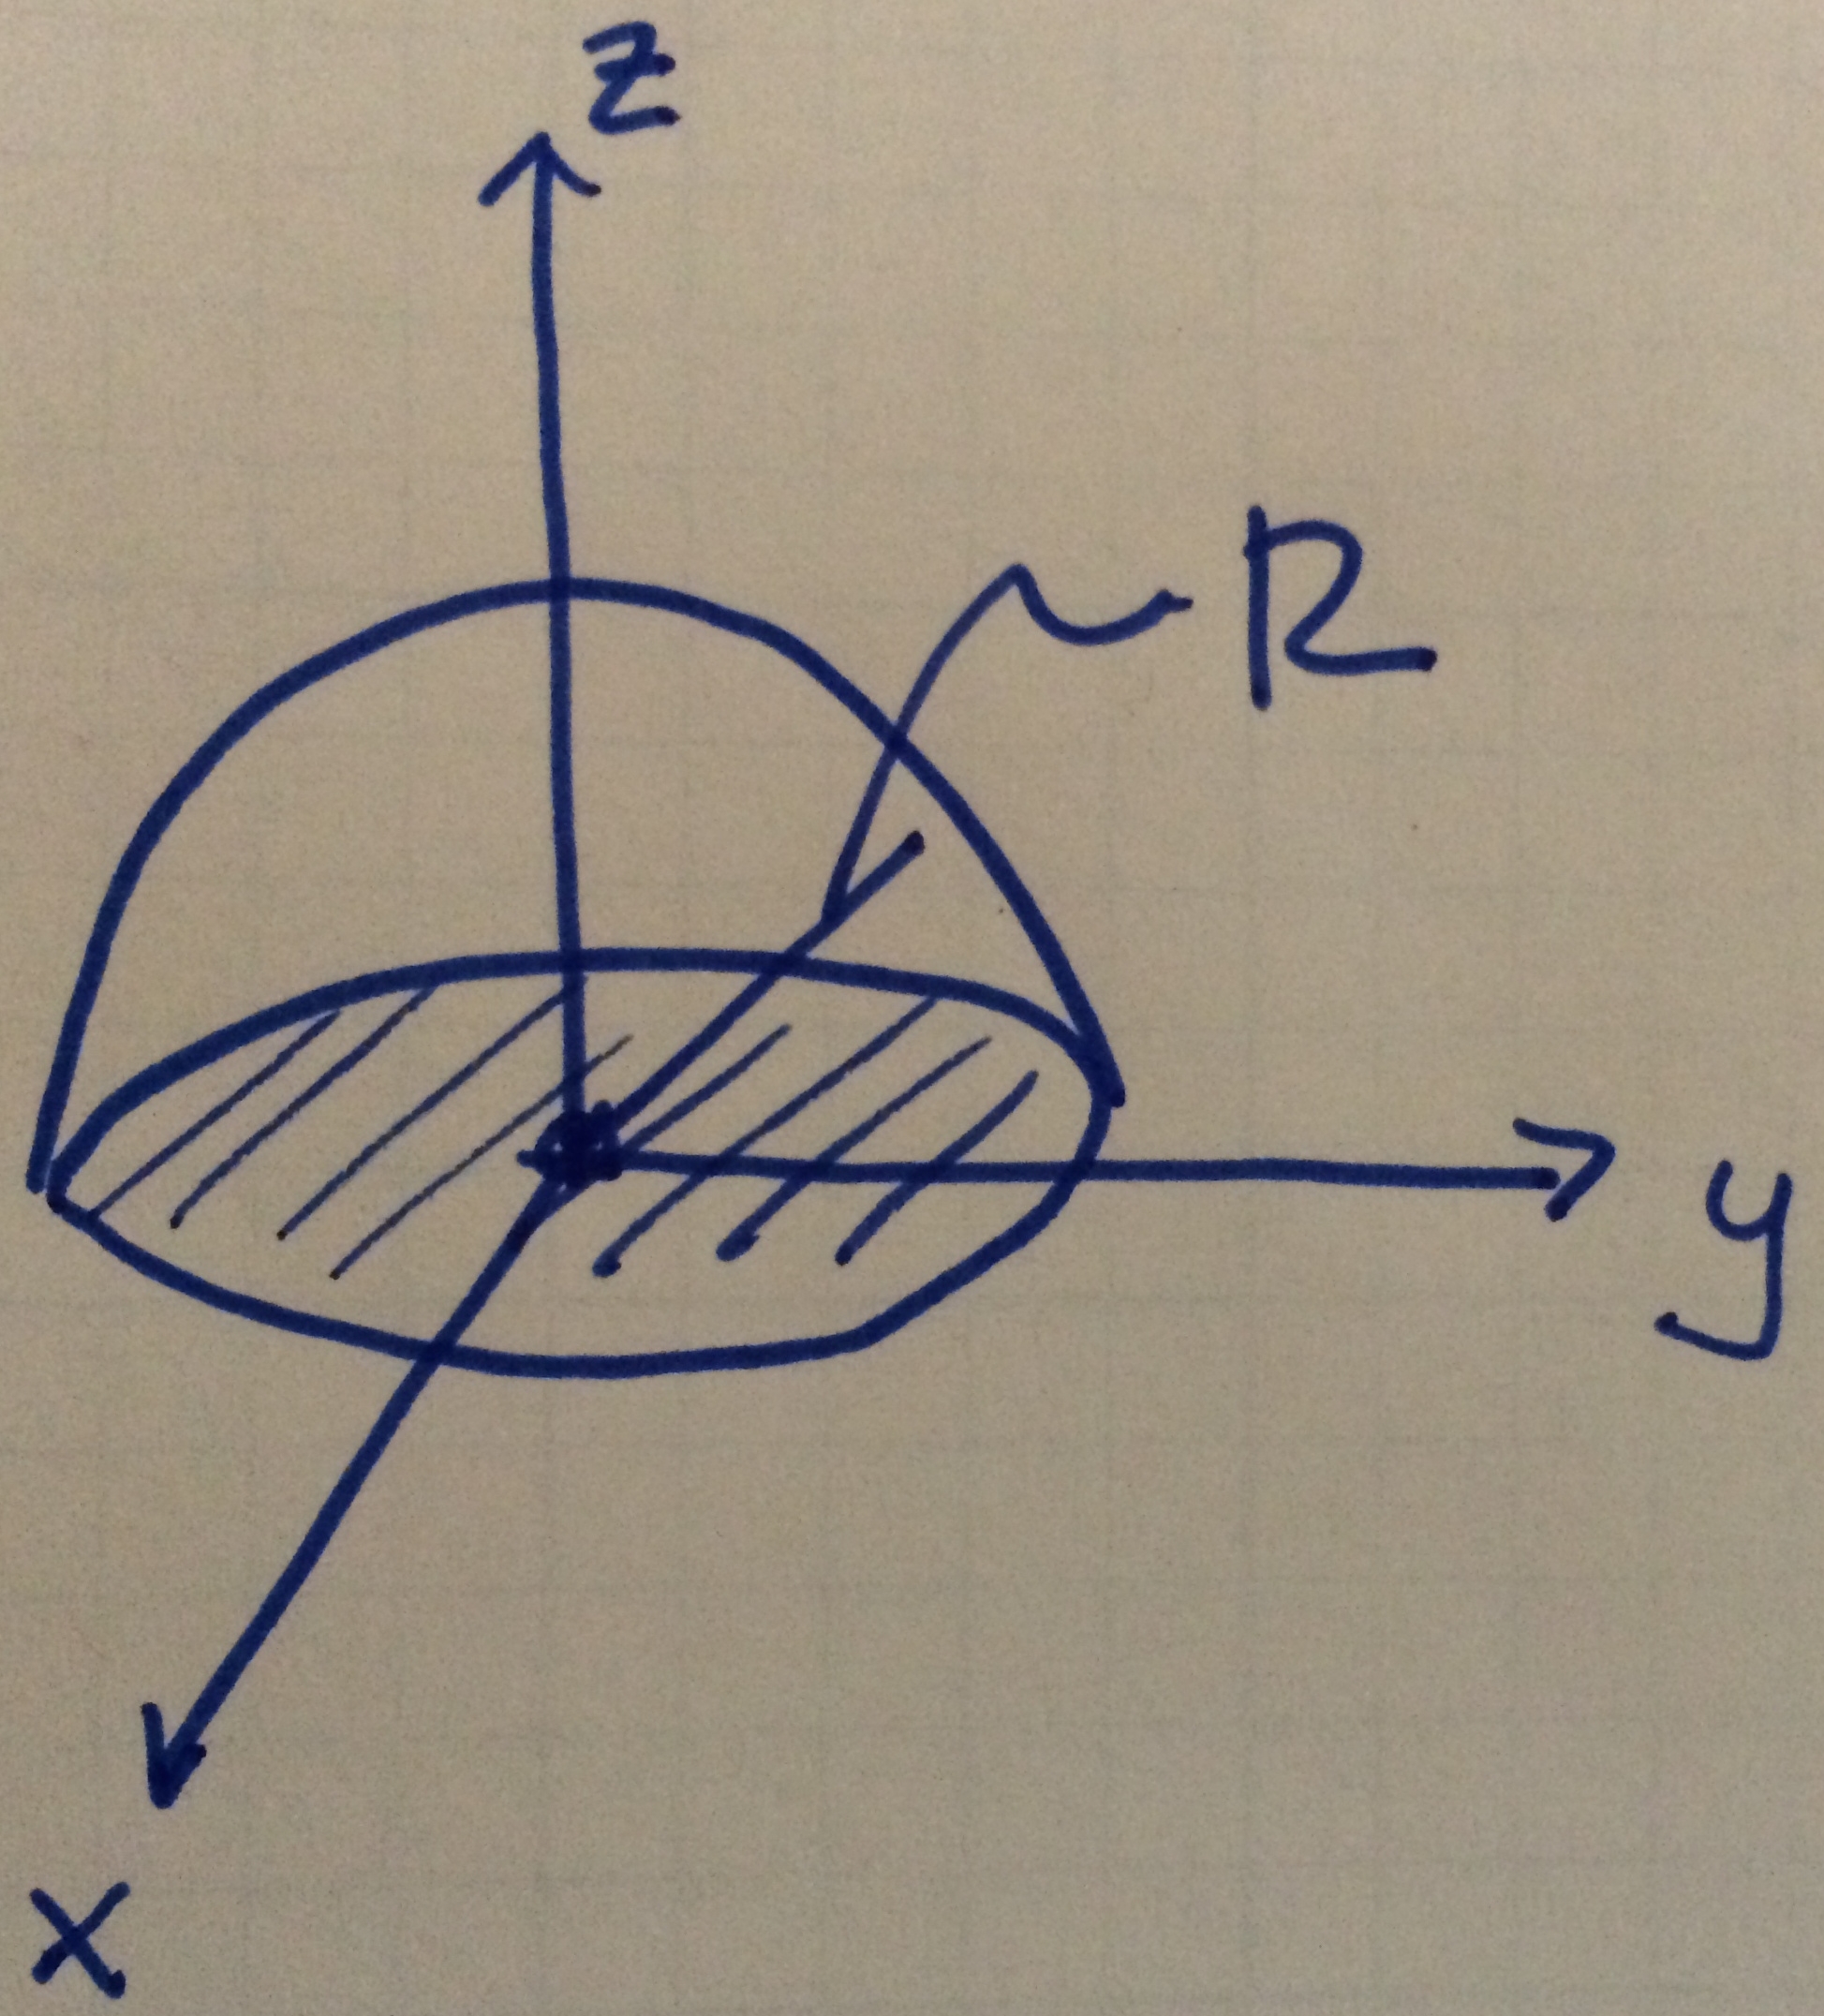 z
R
y
x